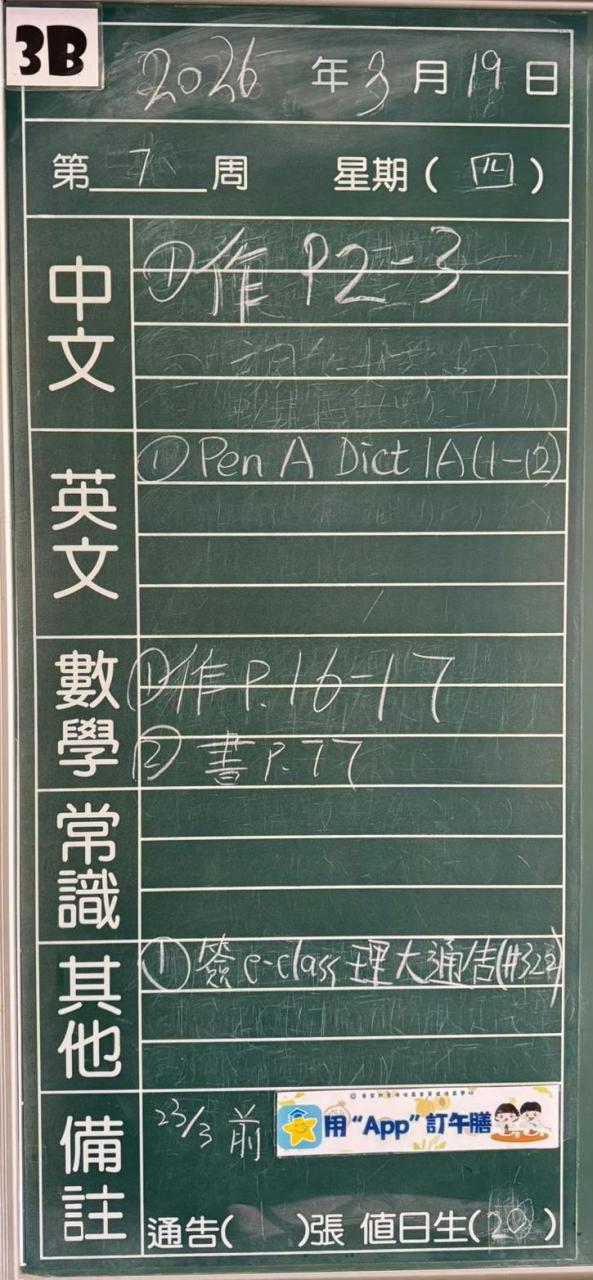 3B
2026 年 3 月 19 日
第 7 周 星期( 四 )
中文
① 作 P2-3
英文
① Pen A Dict 1A(1-12)
數學
① 作 P.16-17
② 書 P.77
常識
其他
① 簽 e-class 理大通告(#322)
備註
23/3 前
用 “App” 訂午膳
通告( )張 值日生(20)